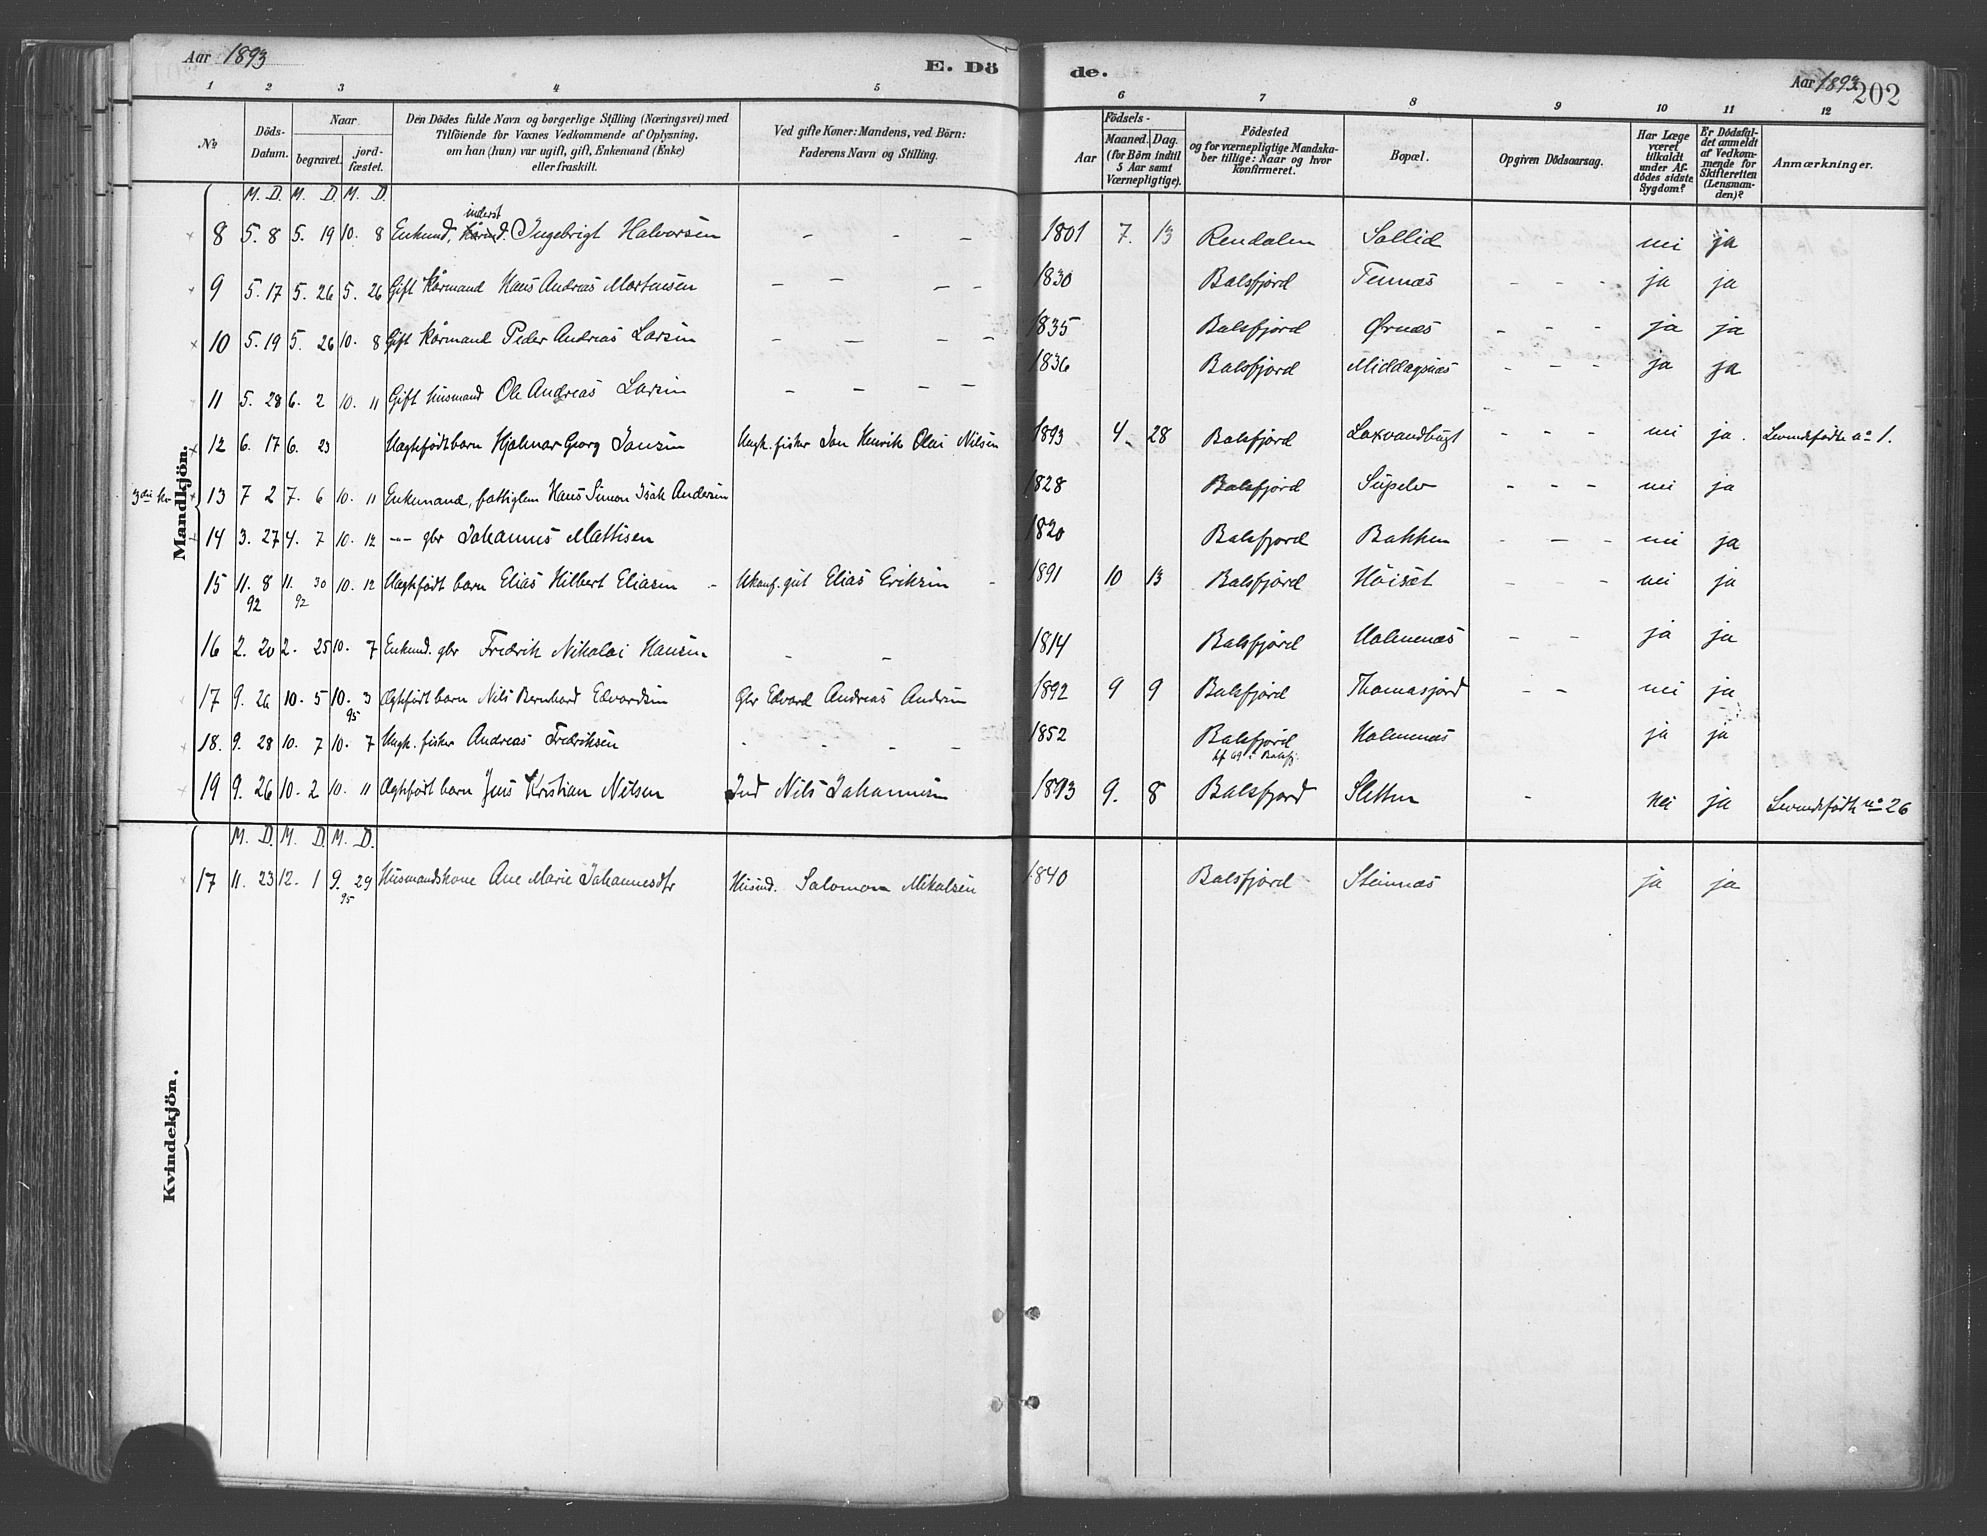 Aar 1893
E. Dö
de.
Aar 1893
202
1 2 3 4 5 6 7 8 9 10 11 12
No
Döds-Datum.
Naar
begravet.
jord-fæstet.
Den Dödes fulde Navn og borgerlige Stilling (Næringsvei) med
Tilföiende for Voxnes Vedkommende af Oplysning,
om han (hun) var ugift, gift, Enkemand (Enke)
eller fraskilt.
Ved gifte Koner: Mandens, ved Börn:
Faderens Navn og Stilling.
Födsels-
Aar
Maaned. Dag.
(for Börn indtil
5 Aar samt
Værnepligtige).
Födested
og for værnepligtige Mandska-
ber tillige: Naar og hvor
konfirmeret.
Bopæl.
Opgiven Dödsaarsag.
Har Læge
været
tilkaldt
under Af-
dödes sidste
Sygdom?
Er Dödsfal-
det anmeldt
af Vedkom-
mende for
Skifteretten
(Lensman-
den)?
Anmærkninger.
Mandkjön.
M. D. M. D. M. D.
inderst
8 5. 8 5. 19 10. 8 Enkemd, Ingebrigt Halvorsen - - - 1801 7. 13 Rendalen Sollid nei ja
9 5. 17 5. 26 5. 26 Gift Kårmand Hans Andreas Mortensen - - - - 1830 Balsfjord Tennæs - - - ja ja
10 5. 19 5. 26 10. 8 Gift Kårmand Peder Andreas Larsen - - - - 1835 Balsfjord Ørnæs - - - ja ja
11 5. 28 6. 2 10. 11 Gift husmand Ole Andreas Larsen - - - - 1836 Balsfjord Middagsnæs - - - ja ja
12 6. 17 6. 23 Uægtefødt barn Hjalmar Georg Jansen Ungk. fisker Jon Henrik Olai Nilsen 1893 4. 28 Balsfjord Laxvandbugt - - - nei ja. Levendefødte no 1.
13 7 2 7. 6 10. 11 Enkemand, fattiglem Hans Simon Isak Andersen 1828 Balsfjord - - - nei ja
14 3. 27 4. 7 10. 12 -"- gbr Johannes Mattisen 1820 Balsfjord Bakken - - - nei ja
15 11. 8 11. 30 10. 12 Uægtefødt barn Elias Hilbert Eliasen - Ukonf. gut Elias Eriksen - 1891 10 13 Balsfjord Høiset - - - nei ja
92 92
16 2. 20 2. 25 10. 7 Enkemd. gbr Fredrik Nikolai Hansen - - 1814 Balsfjord Malmenæs - - ja ja
17 9. 26 10. 5 10. 3 Ægtefødt barn Nils Bernhard Edvardsen Gbr Edvard Andreas Andersen 1892 9 9 Balsfjord Thomasjord - - nei ja
95
18. 9. 28 10. 7 10. 7 Ungk. fisker Andreas Fredriksen - - - - 1852 Balsfjord Malmenæs ja ja
kf 69 i Balsfj.
19 9. 26 10. 2 10. 11 Ægtefødt barn Jens Kristian Nilsen Ind Nils Johannesen 1893 9. 8 Balsfjord Sletten - nei ja Levendefødte no 26
Kvindekjön.
M. D. M. D. M. D.
17 11. 23 12. 1 9. 29 Husmandskone Ane Marie Johannesdtr Husmd. Salomon Mikalsen 1840 Balsfjord Steinnæs ja ja
95